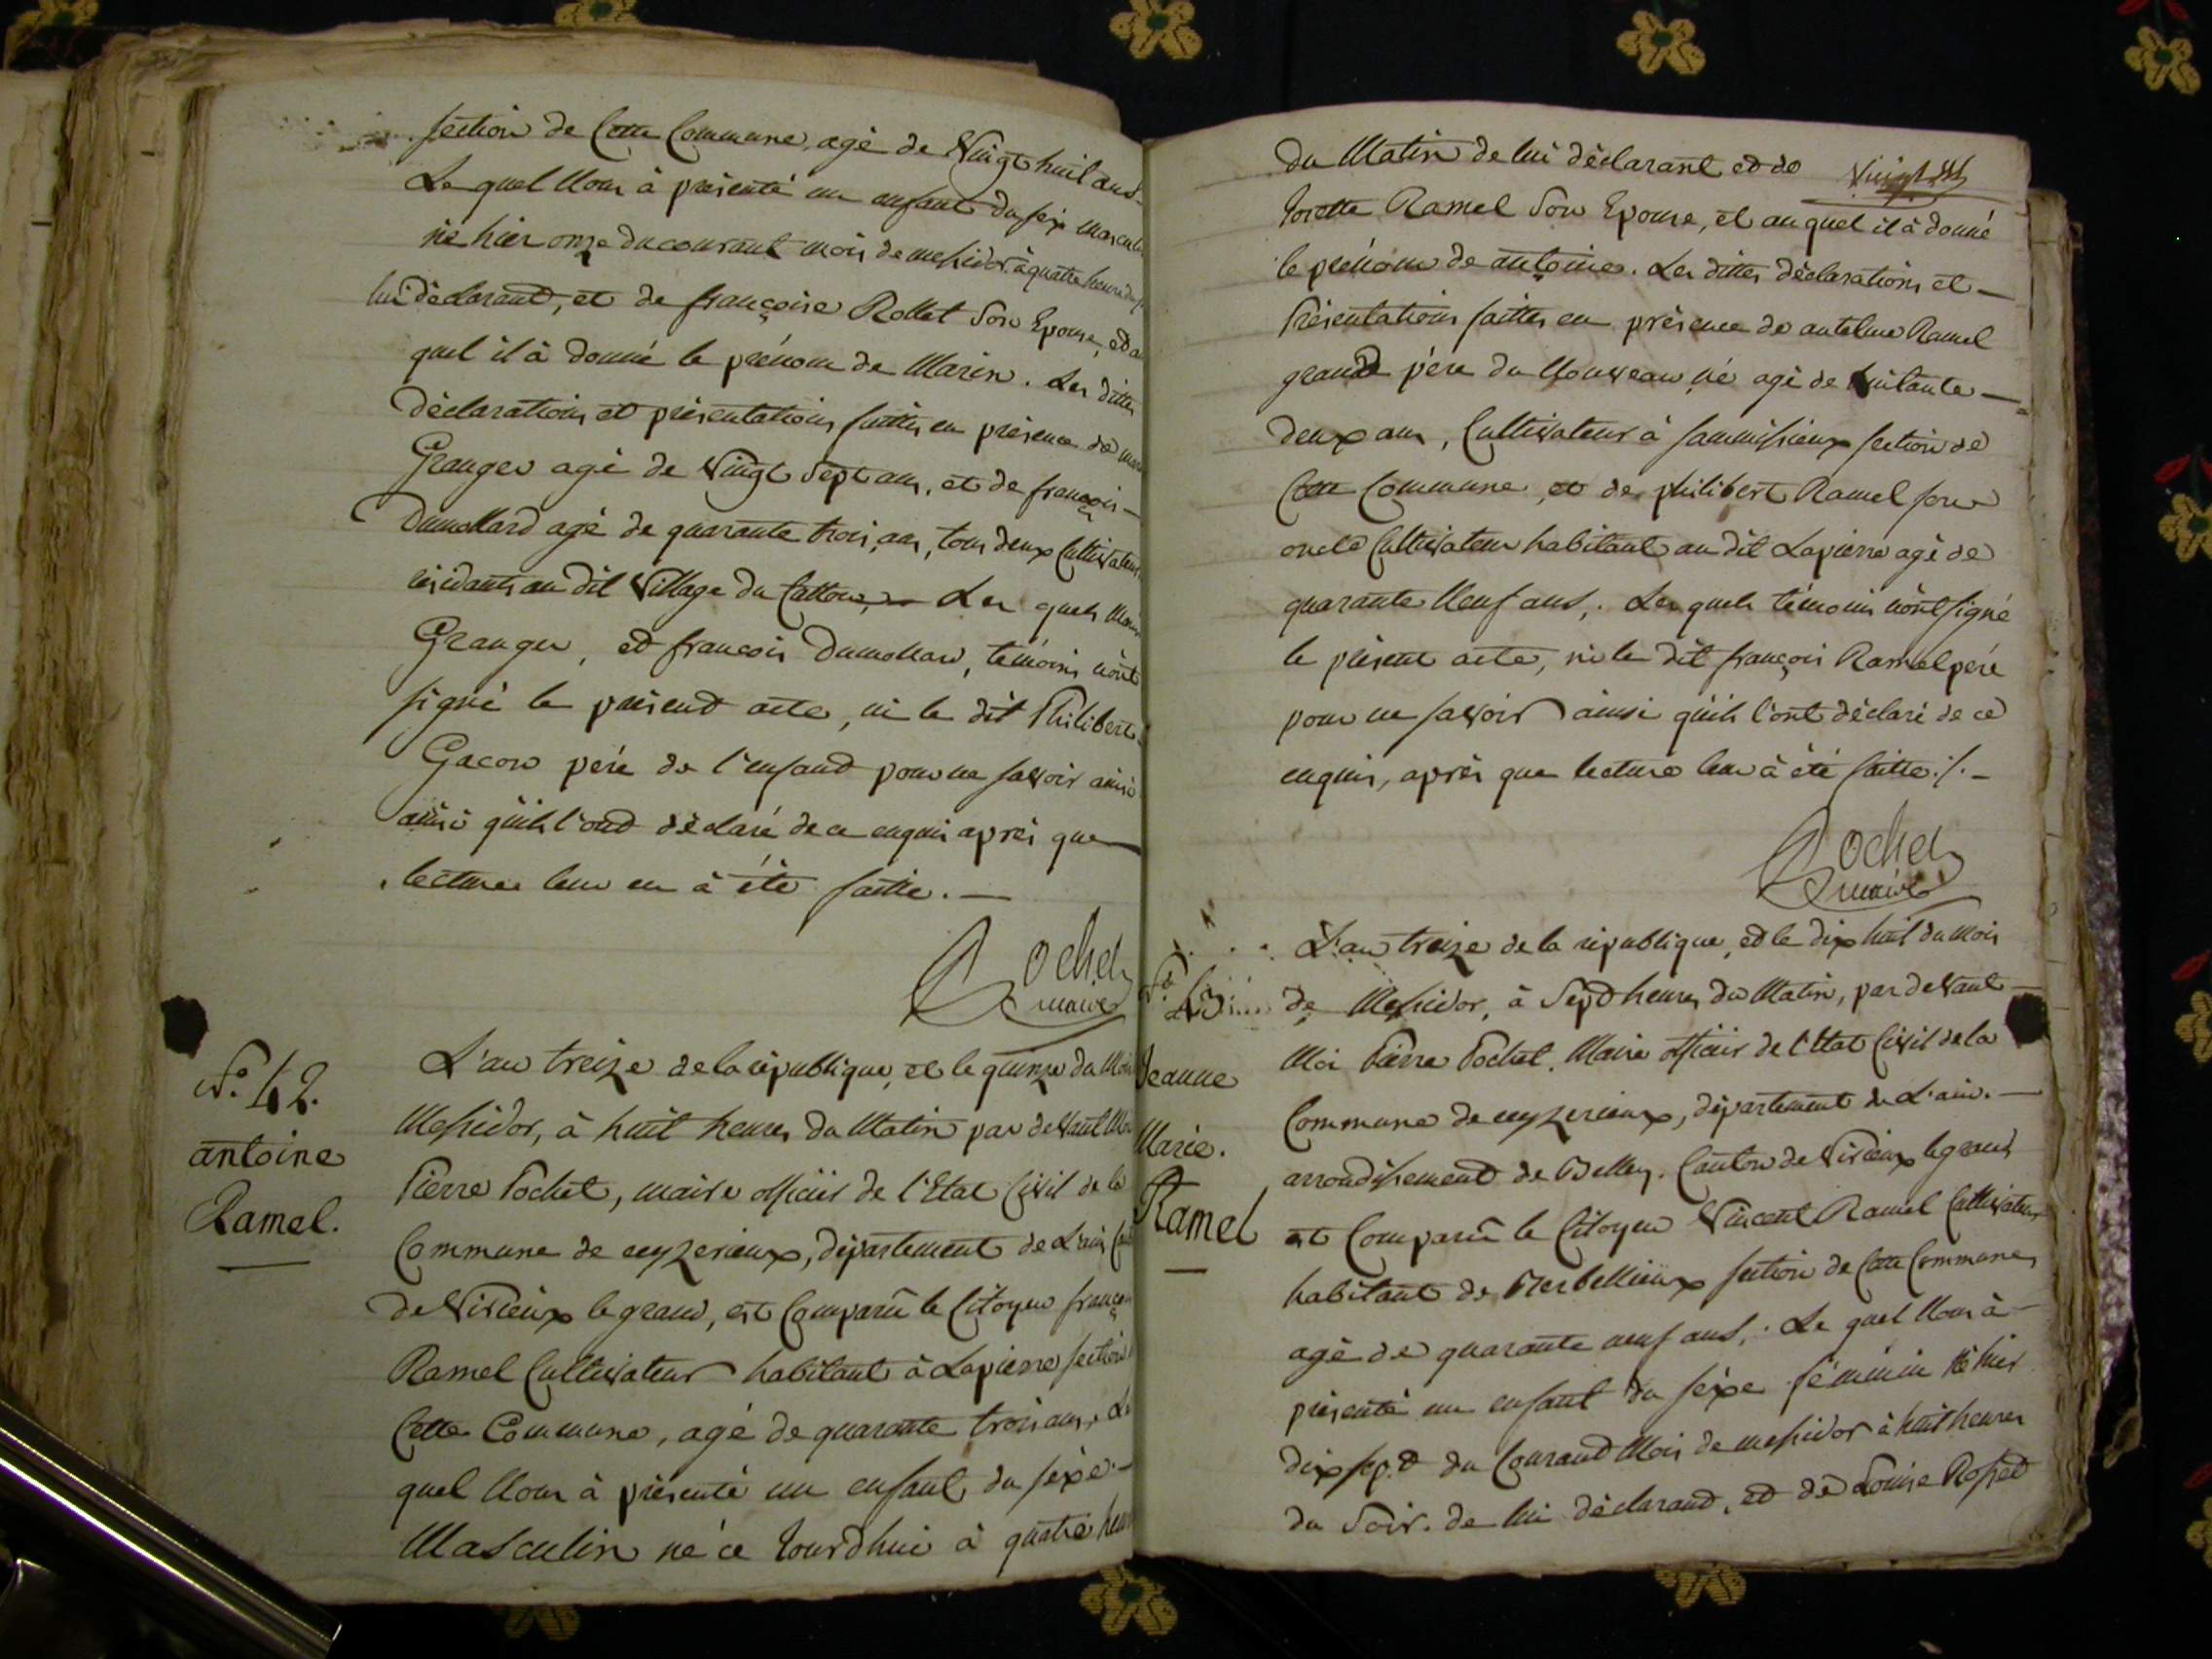 section de Cette Commune, agé de Vingt huit ans
Le quel Nous à présenté un enfant du sexe mascul
né hier onze du courant mois de messidor à quatre heure du
lui déclarant, et de françoise Rollet Son Epouse, et a
quel il à donné le prénom de Marin. Les dittes
déclarations et présentations faittes en présence de
Granger agé de Vingt Sept ans, et de françois
Dumollard agé de quarante trois ans, tous deux Cultivateurs
résidants au dit Village du Catton, Les quels
Granger, et françois Dumollard, témoins n'ont
signé le présent acte, ni le dit Philibert
Gacon père de l'enfand pour ne savoir ainsi
ainsi qu'ils l'ond déclaré de ce enquis après que
lecture leur en à été faitte.
Pochet
maire
N.° 42.
antoine
Ramel.
L'an treize de la république, et le quinze du Mois
Messidor, à huit heures du Matin par devant Moi
Pierre Pochet, maire officier de l'Etat Civil de la
Commune de ceyzerieux, département de L'ain
de Virieux le grand, est Comparû le Citoyen françois
Ramel Cultivateur habitant à Lapierre section
Cette Commune, agé de quarante trois ans, Le
quel Nous à présenté un enfant du sexe
Masculin né ce Jourd'hui à quatre heur
du Matin de lui déclarant et de
Josette Ramel Son Epouse, et au quel il à donné
le prénom de antoine. Les dittes déclarations et
Présentations faittes en présence de antelme Ramel
grand père du Nouveau né agé de huitante
deux ans, Cultivateur à section de
Cette Commune, et de philibert Ramel son
oncle Cultivateur habitant au dit Lapierre agé de
quarante Neuf ans,. Les quels témoins n'ont signé
le présent acte, ni le dit françois Ramel père
pour ne savoir ainsi qu'ils l'ont déclaré de ce
enquis, après que lecture leur à été faitte./.
Pochet
maire
N.° 43
Jeanne
Marie.
Ramel
L'an treize de la république, et le dix huit du Mois
de Messidor, à Sept heures du Matin, par devant
Moi Pierre Pochet, Maire officier de l'Etat Civil de la
Commune de ceyzerieux, département de L'ain.
arrondissement de Belley. Canton de Virieux le grand
est Comparû le Citoyen Vincent Ramel Cultivateur
habitant de section de Cette Commune,
agé de quarante neuf ans,. Le quel Nous à
présenté un enfant du sexe féminin né hier
dix sept du Courand Mois de messidor à huit heures
du Soir. de lui déclarand, et de Louise Rosset